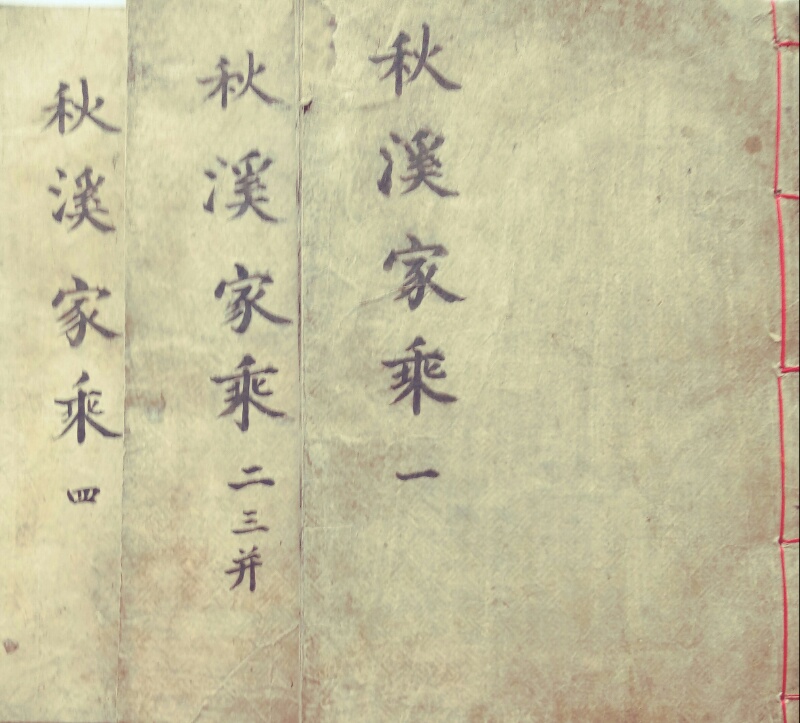 秋溪家乘一
秋溪家乘二三并
秋溪家乘四